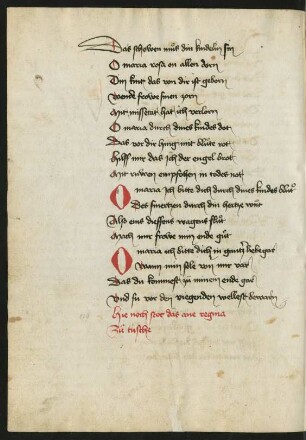 Das schowen mus din kindelin sin
O maria rosa on allen dorn
Din kint das von dir ist geborn
Wende frowe sinen zorn
mit missetat hat ich verlorn
O maria durch dines kindes dot
Das vor dir hing mit blute rot
hilff mir das ich der engel brot
mit ruwen empfohen in todes not
O maria ich bitte dich durch dines kindes blut
Des smertzen durch din hertze wut
Also eins diessens wages flut
mach mir frowe min ende gut
O maria ich bitte dich in gantzer bekegar
Wann min sele von mir var
Das du kommest zu minem ende gar
Und su vor den viegenden wellest bewarn
Hie noch stot das aue regina
Zu tusche